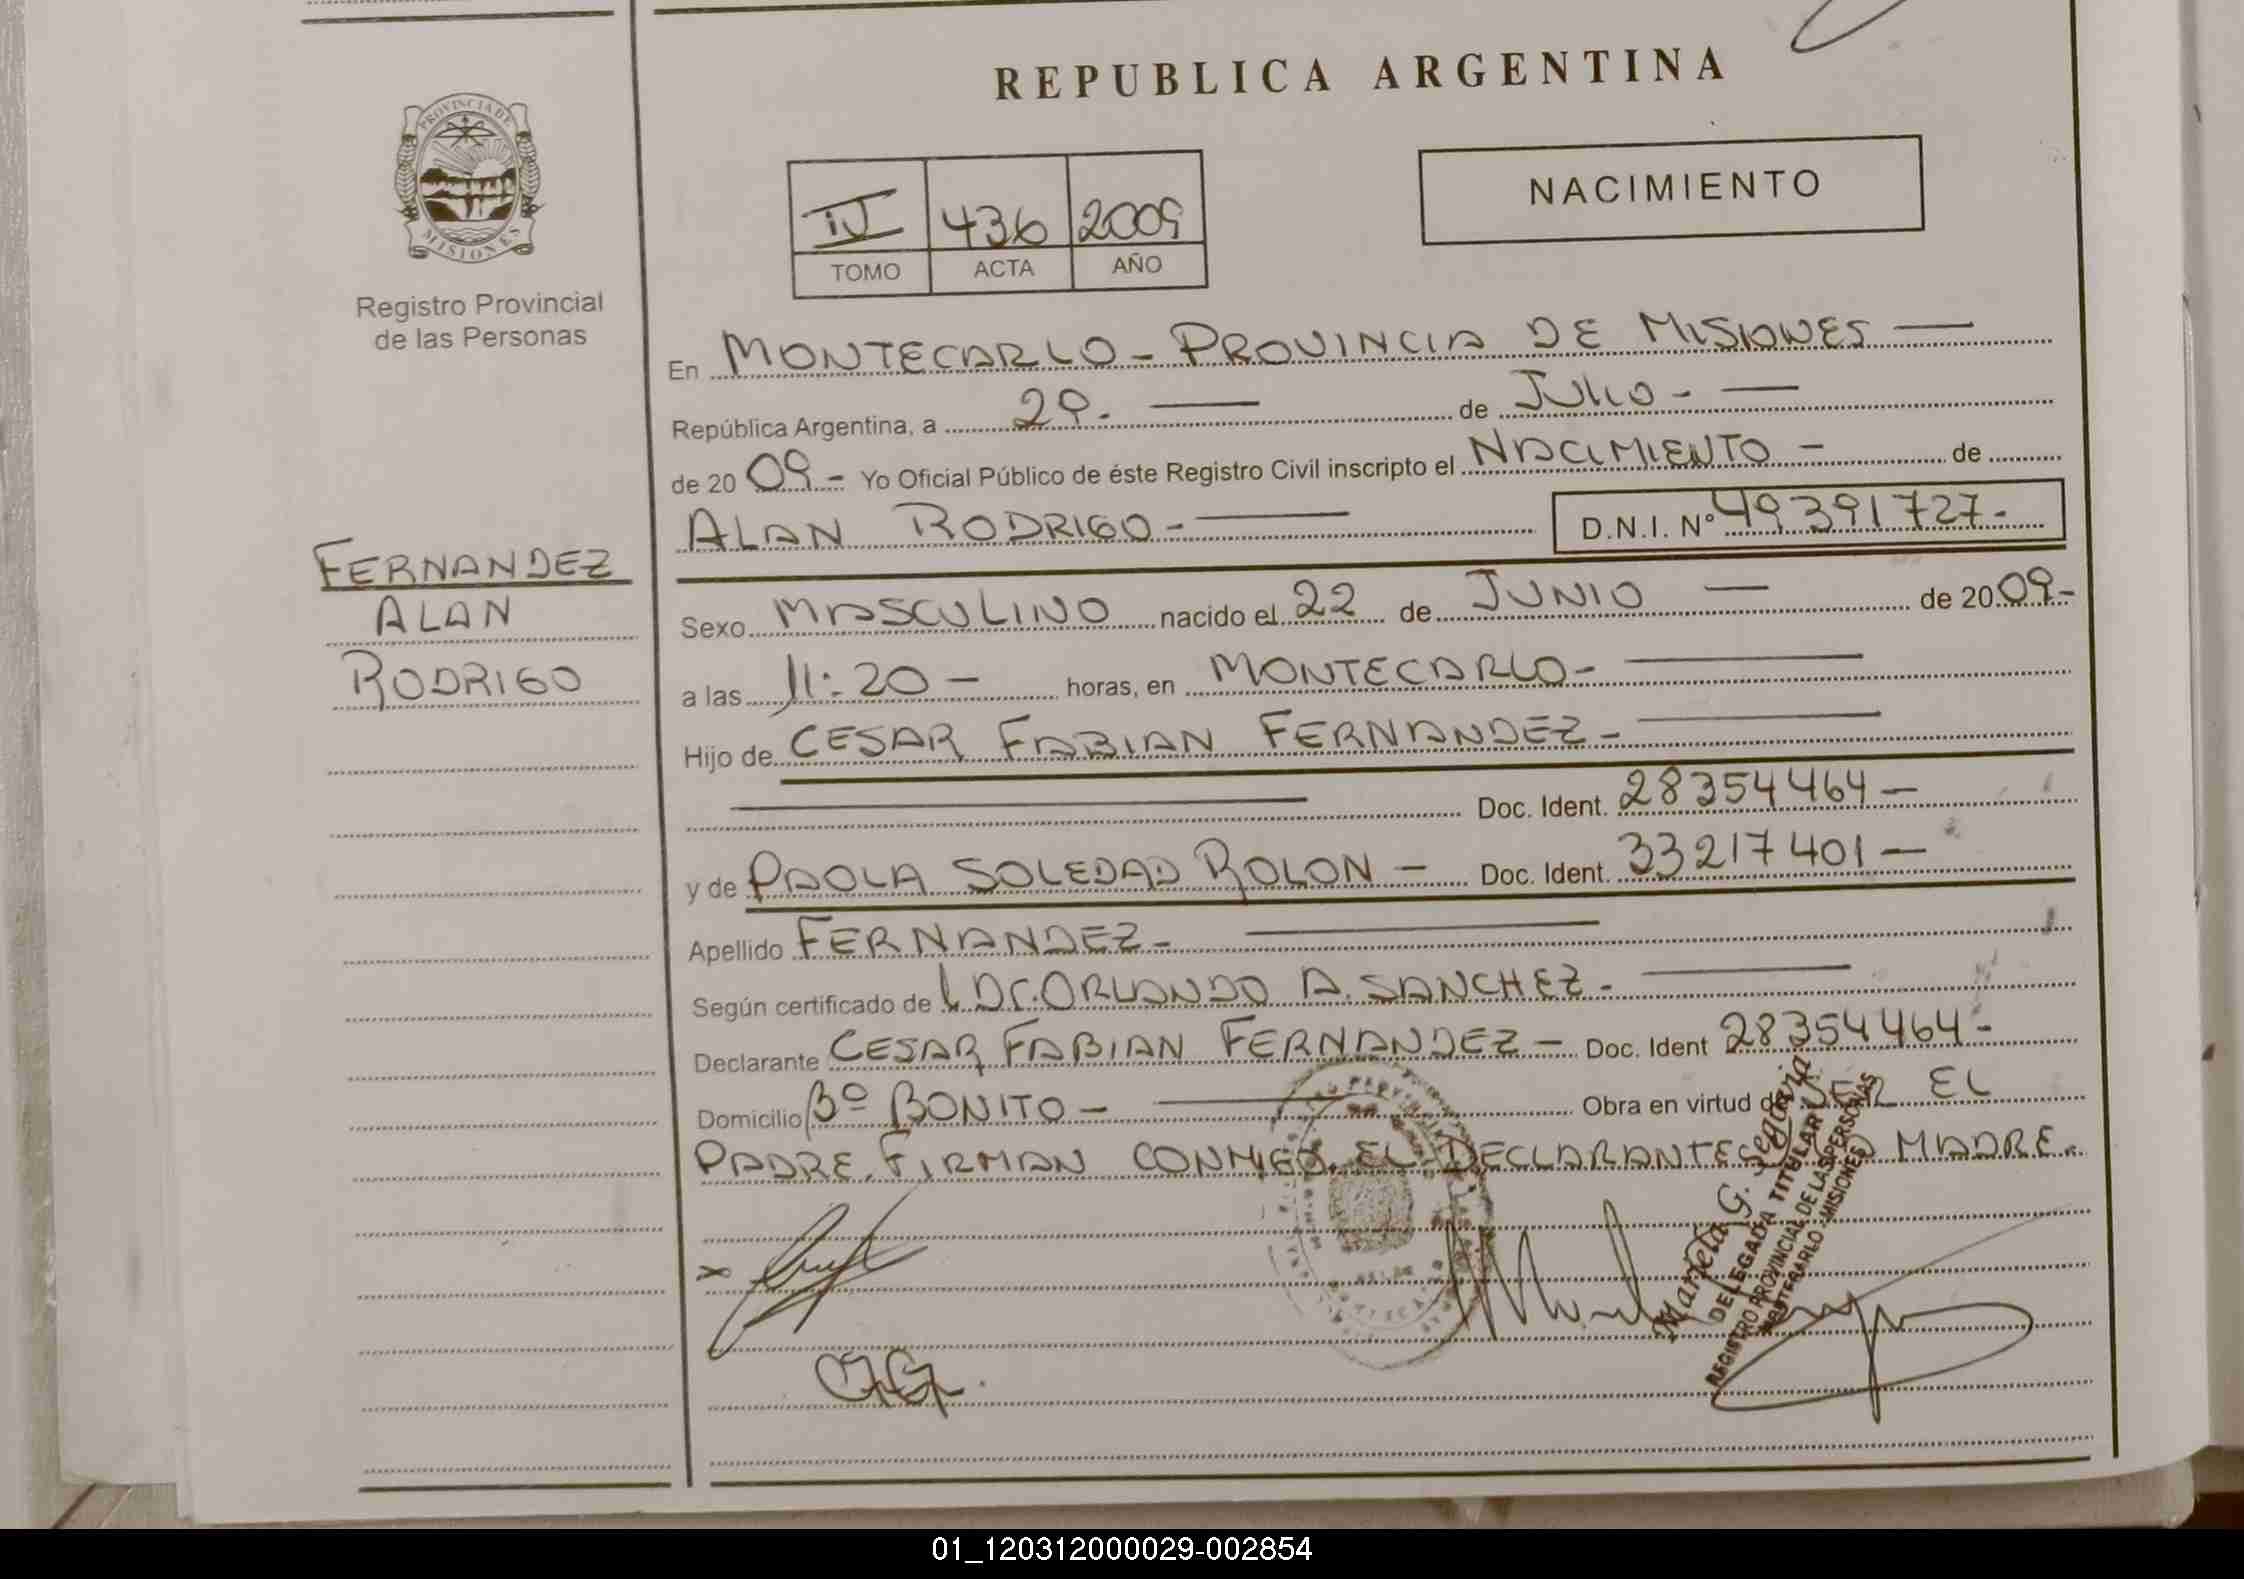 REPUBLICA ARGENTINA
PROVINCIA DE
MISIONES
Registro Provincial
de las Personas
IV 436 2009
TOMO ACTA AÑO
NACIMIENTO
En MONTECARLO - PROVINCIA DE MISIONES —
República Argentina, a 29. — de JULIO - —
de 20 09 - Yo Oficial Público de éste Registro Civil inscripto el NACIMIENTO - de
ALAN RODRIGO - — D.N.I. N° 49391727-
FERNANDEZ
ALAN
RODRIGO
Sexo MASCULINO nacido el 22 de JUNIO — de 20 09-
a las 11:20 - horas, en MONTECARLO - —
Hijo de CESAR FABIAN FERNANDEZ - —
— Doc. Ident. 28354464 -
y de PAOLA SOLEDAD ROLON - Doc. Ident. 33217401 -
Apellido FERNANDEZ - —
Según certificado de ORLANDO A. SANCHEZ - —
Declarante CESAR FABIAN FERNANDEZ - Doc. Ident 28354464-
Domicilio Bº BONITO - — Obra en virtud de SER EL
PADRE. FIRMAN CONMIGO EL DECLARANTE MADRE.
Mariela G. Segovia
DELEGADA TITULAR
REGISTRO PROVINCIAL DE LAS PERSONAS
MONTECARLO - MISIONES
01_120312000029-002854